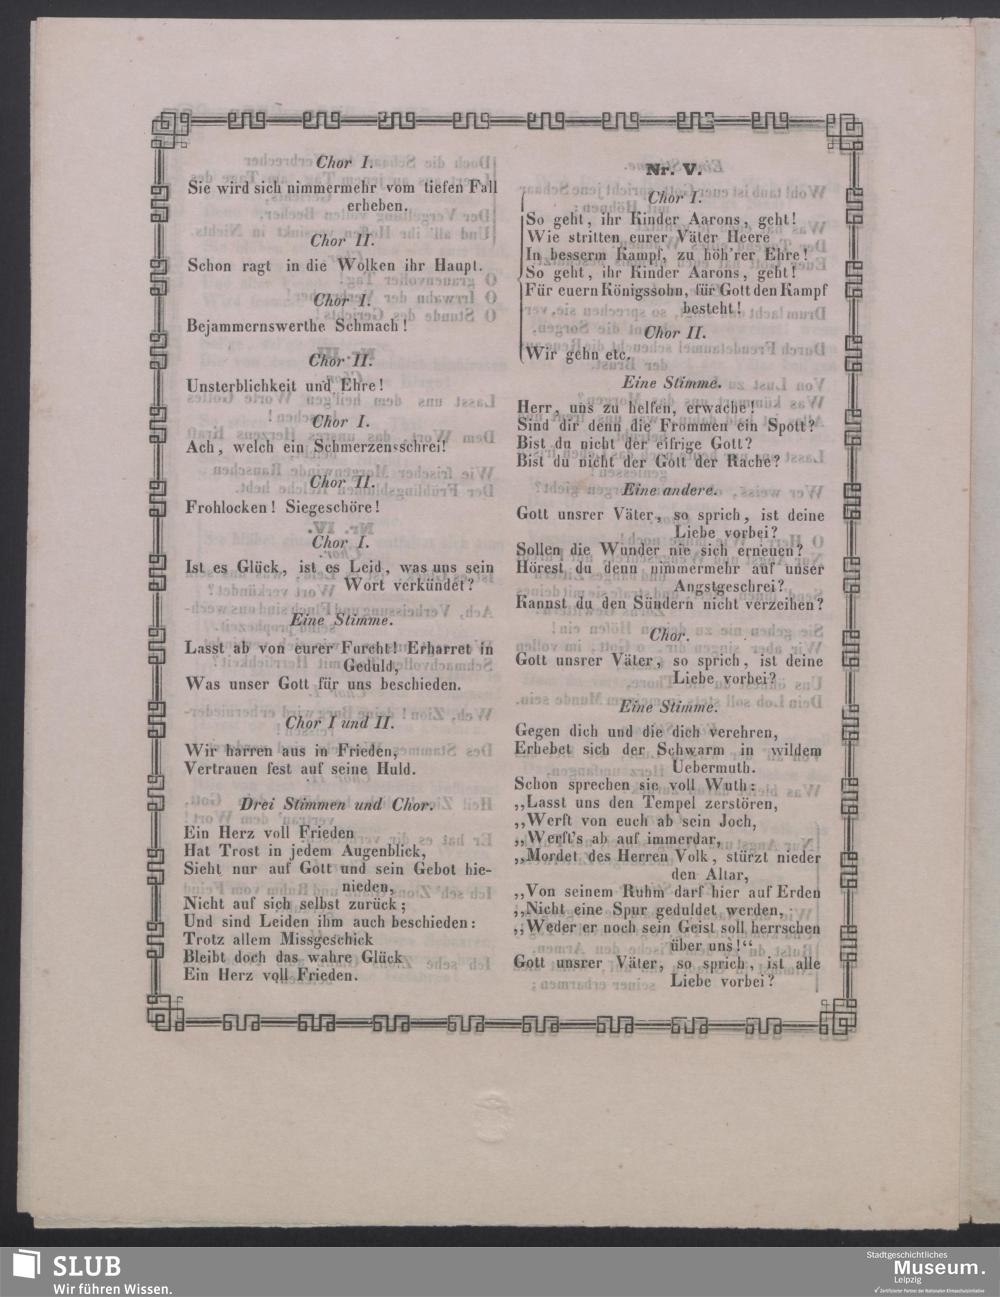 Chor I.
Sie wird sich nimmermehr vom tiefen Fall
erheben.
Chor II.
Schon ragt in die Wolken ihr Haupt.
Chor I.
Bejammernswerthe Schmach!
Chor II.
Unsterblichkeit und Ehre!
Chor I.
Ach, welch ein Schmerzensschrei!
Chor II.
Frohlocken! Siegeschöre!
Chor I.
Ist es Glück, ist es Leid, was uns sein
Wort verkündet?
Eine Stimme.
Lasst ab von eurer Furcht! Erharret in
Geduld,
Was unser Gott für uns beschieden.
Chor I und II.
Wir harren aus in Frieden,
Vertrauen fest auf seine Huld.
Drei Stimmen und Chor.
Ein Herz voll Frieden
Hat Trost in jedem Augenblick,
Sieht nur auf Gott und sein Gebot hie-
nieden,
Nicht auf sich selbst zurück;
Und sind Leiden ihm auch beschieden:
Trotz allem Missgeschick
Bleibt doch das wahre Glück
Ein Herz voll Frieden.
Nr. V.
Chor I.
So geht, ihr Kinder Aarons, geht!
Wie stritten eurer Väter Heere
In besserm Kampf, zu höh'rer Ehre!
So geht, ihr Kinder Aarons, geht!
Für euern Königssohn, für Gott den Kampf
besteht!
Chor II.
Wir gehn etc.
Eine Stimme.
Herr, uns zu helfen, erwache!
Sind dir denn die Frommen ein Spott?
Bist du nicht der eifrige Gott?
Bist du nicht der Gott der Rache?
Eine andere.
Gott unsrer Väter, so sprich, ist deine
Liebe vorbei?
Sollen die Wunder nie sich erneuen?
Hörest du denn nimmermehr auf unser
Angstgeschrei?
Kannst du den Sündern nicht verzeihen?
Chor.
Gott unsrer Väter, so sprich, ist deine
Liebe vorbei?
Eine Stimme.
Gegen dich und die dich verehren,
Erhebet sich der Schwarm in wildem
Uebermuth.
Schon sprechen sie voll Wuth:
„Lasst uns den Tempel zerstören,
„Werft von euch ab sein Joch,
„Werft's ab auf immerdar,
„Mordet des Herren Volk, stürzt nieder
den Altar,
„Von seinem Ruhm darf hier auf Erden
„Nicht eine Spur geduldet werden,
„Weder er noch sein Geist soll herrschen
über uns!“
Gott unsrer Väter, so sprich, ist alle
Liebe vorbei?
SLUB
Wir führen Wissen.
Stadtgeschichtliches
Museum.
Leipzig